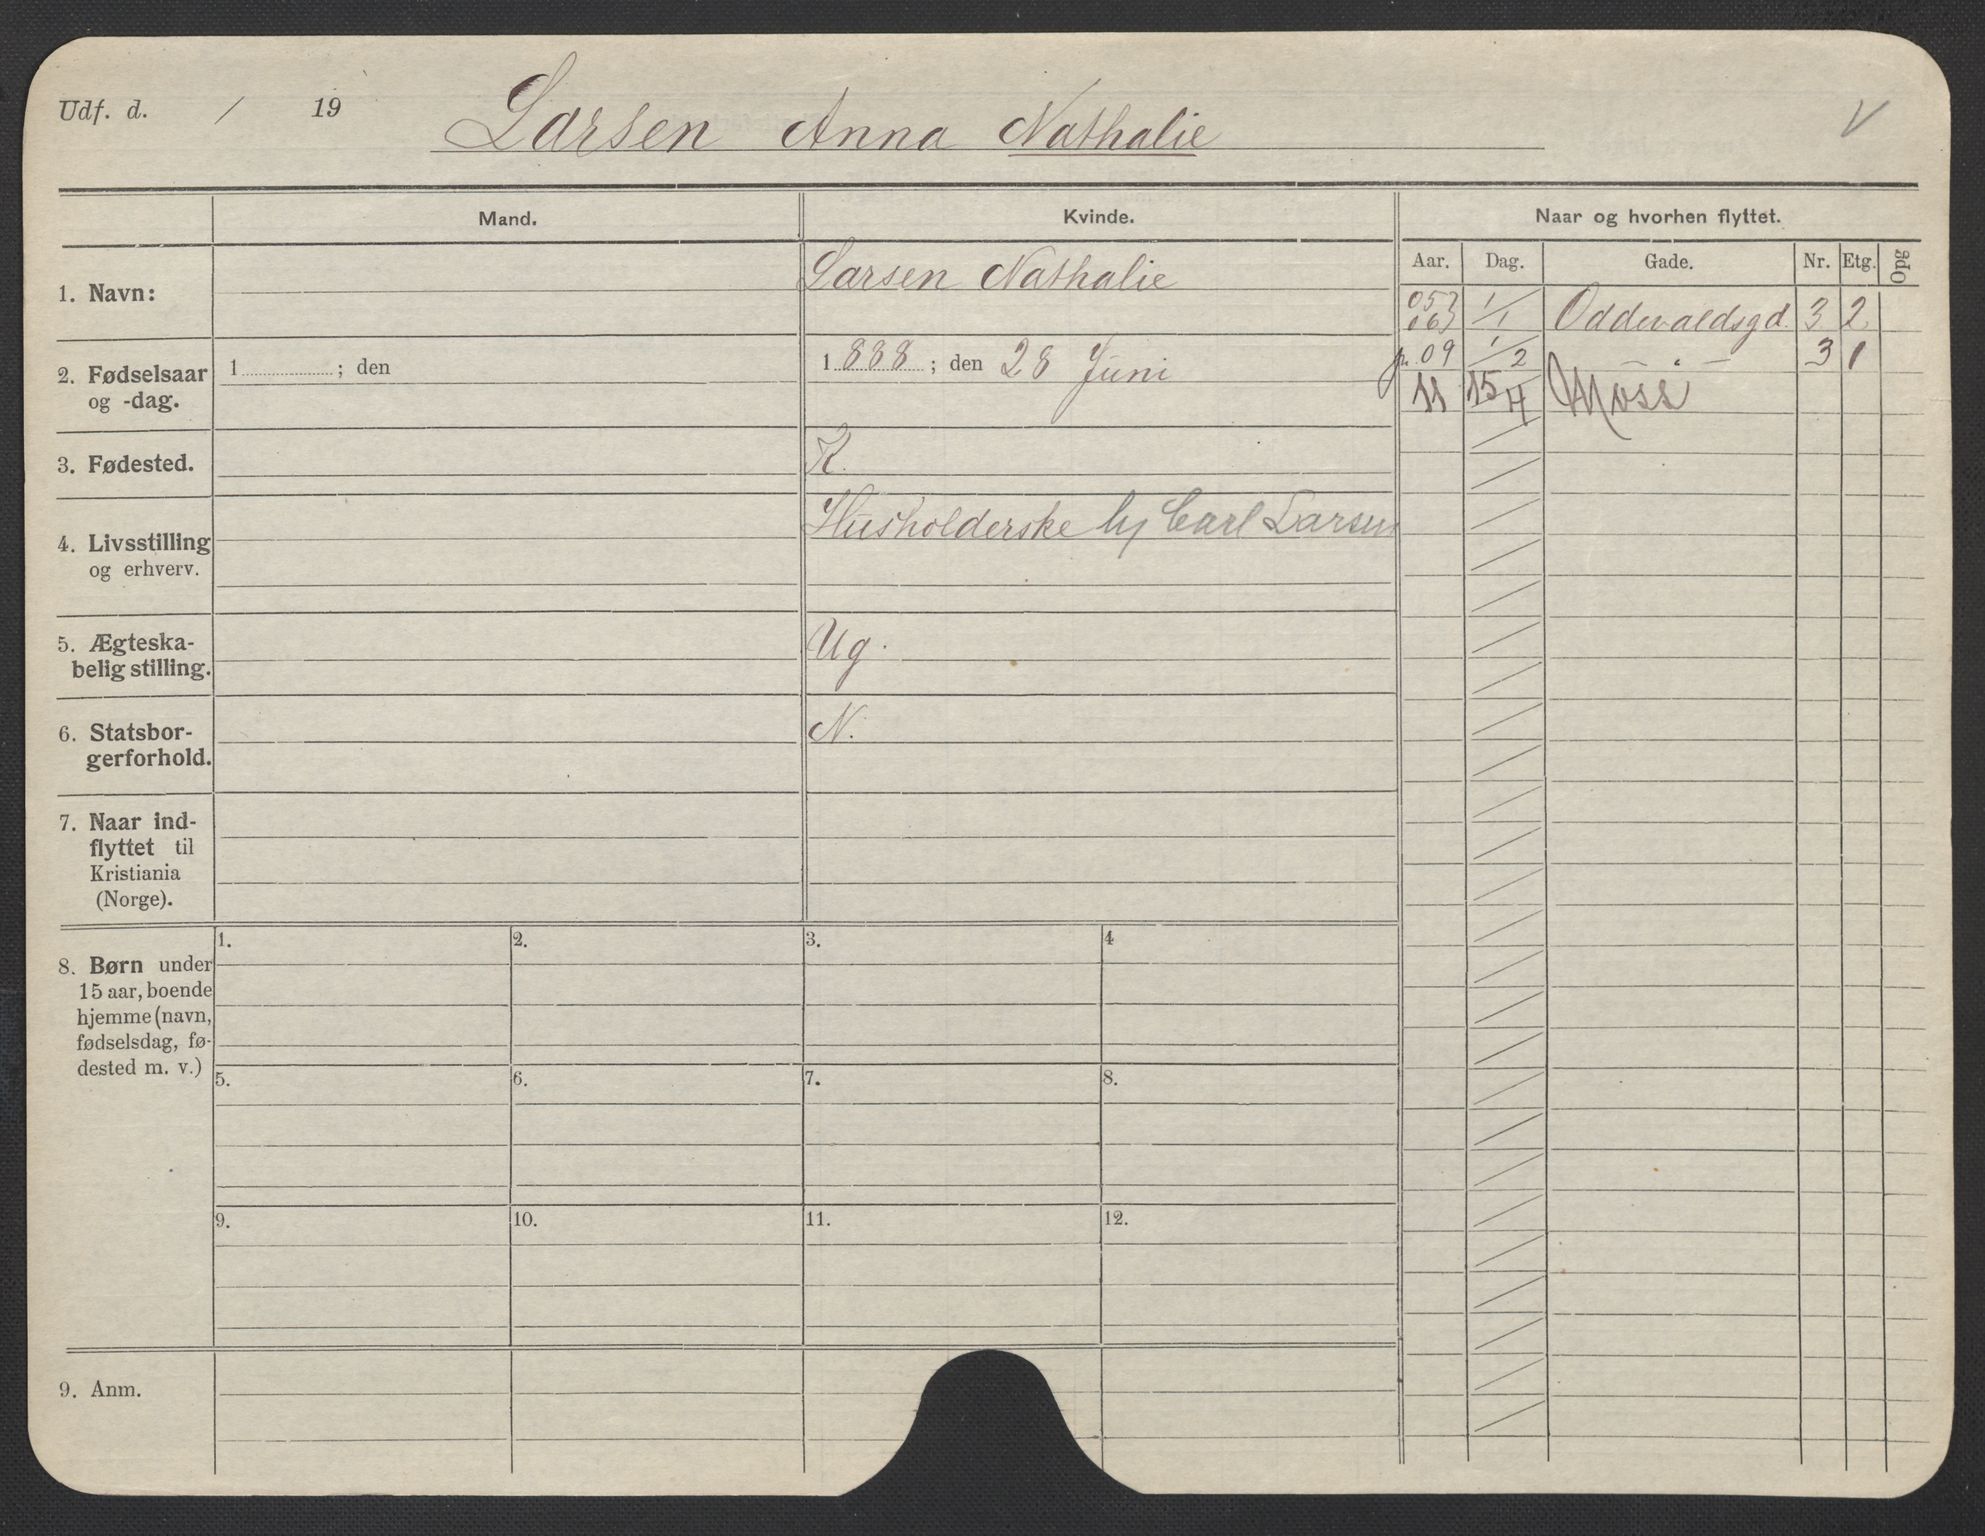 Udf. d. / 19 Larsen Anna Nathalie V
Mand. Kvinde. Naar og hvorhen flyttet.
Aar. Dag. Gade. Nr. Etg. Opg
1. Navn: Larsen Nathalie
05 06 1/1 Oddevaldsgd. 3 2
p. 09 1/2 — " — 3 1
11 15/4 Moss
2. Fødselsaar
og -dag.
1 ; den
1 888 ; den 28 Juni
3. Fødested. K.
4. Livsstilling
og erhverv.
Husholderske hj Carl Larsen
5. Ægteska-
belig stilling.
Ug.
6. Statsbor-
gerforhold.
N.
7. Naar ind-
flyttet til
Kristiania
(Norge).
8. Børn under
15 aar, boende
hjemme (navn,
fødselsdag, fø-
dested m. v.)
1. 2. 3. 4
5. 6. 7. 8.
9. 10. 11. 12.
9. Anm.